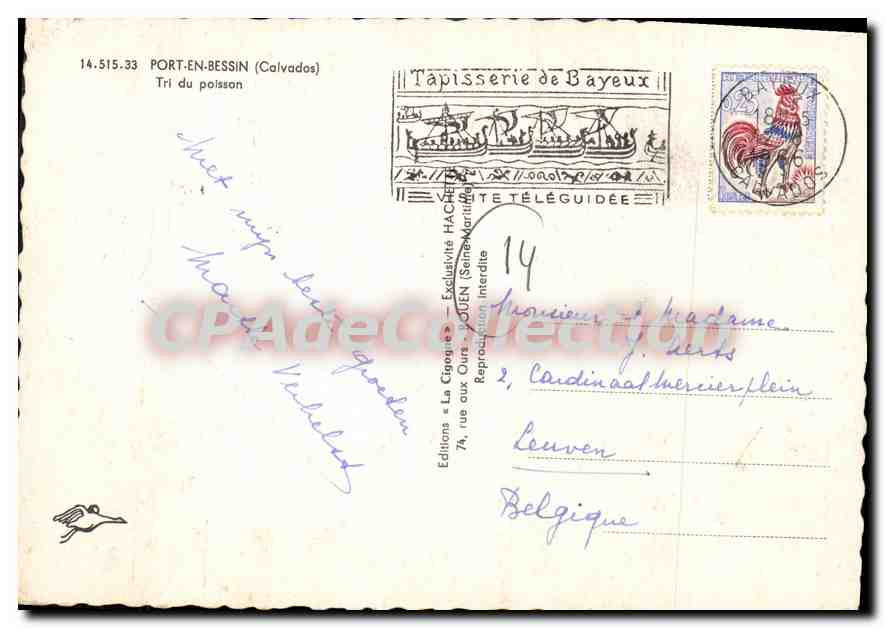 14.515.33 PORT-EN-BESSIN (Calvados)
Tri du poisson
Tapisserie de Bayeux
VISITE TÉLÉGUIDÉE
BAYEUX
CALVADOS
Met mijn beste groeten
Maria Verhelst
Editions « La Cigogne » - Exclusivité HACHETTE
74, rue aux Ours - ROUEN (Seine-Maritime)
Reproduction Interdite
14
Monsieur & Madame
J. Serbs
2, Cardinaal Mercierplein
Leuven
Belgique
CPAdeCollection